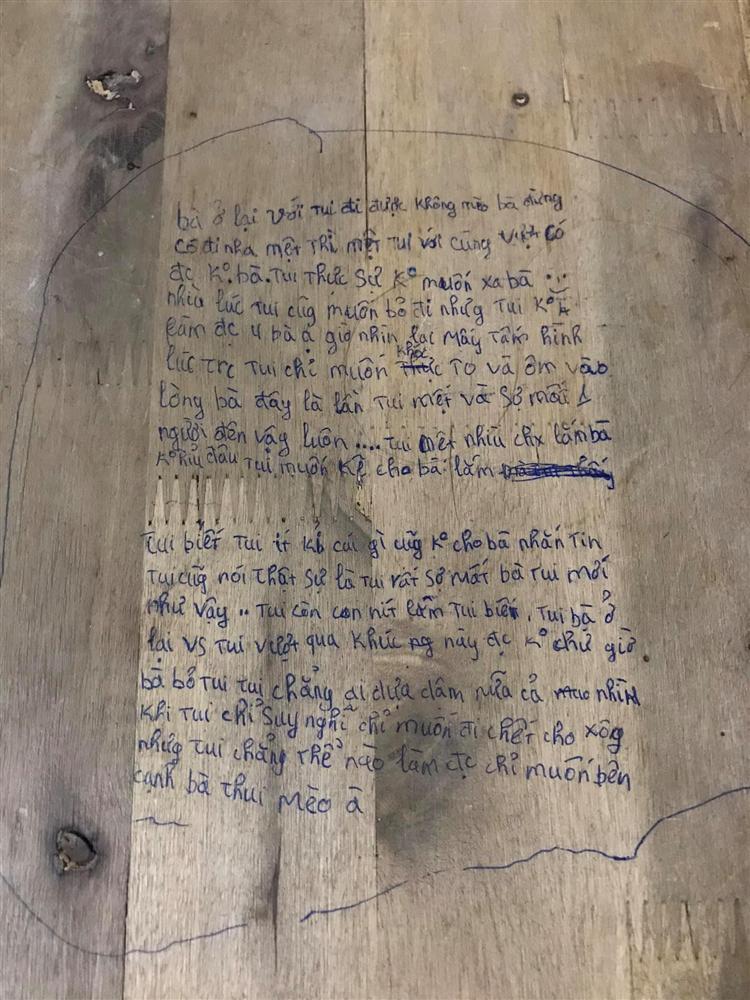 bà ở lại với tui đi được không mèo bà đừng
cố đi nha mệt thì mệt tui với cùng vượt có
đc k°. bà. Tui thực sự k° muốn xa bà ...
nhìu lúc tui cũg muốn bỏ đi nhưg tui k°
làm đc u bà ạ giờ nhìn lại mấy tấm hình
lúc trc tui chỉ muốn khóc to và ôm vào
lòng bà đây là lần tui mệt và sợ mất 1
người đến vậy luôn .... tui mệt nhìu chx lắm bà
k° hĩu đâu tui muốn kể cho bà lắm
Tui biết tui ít kỉ cái gì cũg k° cho bà nhắn tin
tui cũg nói thật sự là tui rất sợ mất bà tui mới
như vậy .. tui còn con nít lắm tui biết, tui bà ở
lại vs tui vượt qua khúc ng này đc k° chứ giờ
bà bỏ tui tui chẳng ai dựa dẫm nữa cả nhìn
khi tui chỉ suy nghĩ chỉ muốn đi chết cho xôg
nhưg tui chẳng thể nào làm đc chỉ muốn bên
cạnh bà thui mèo à